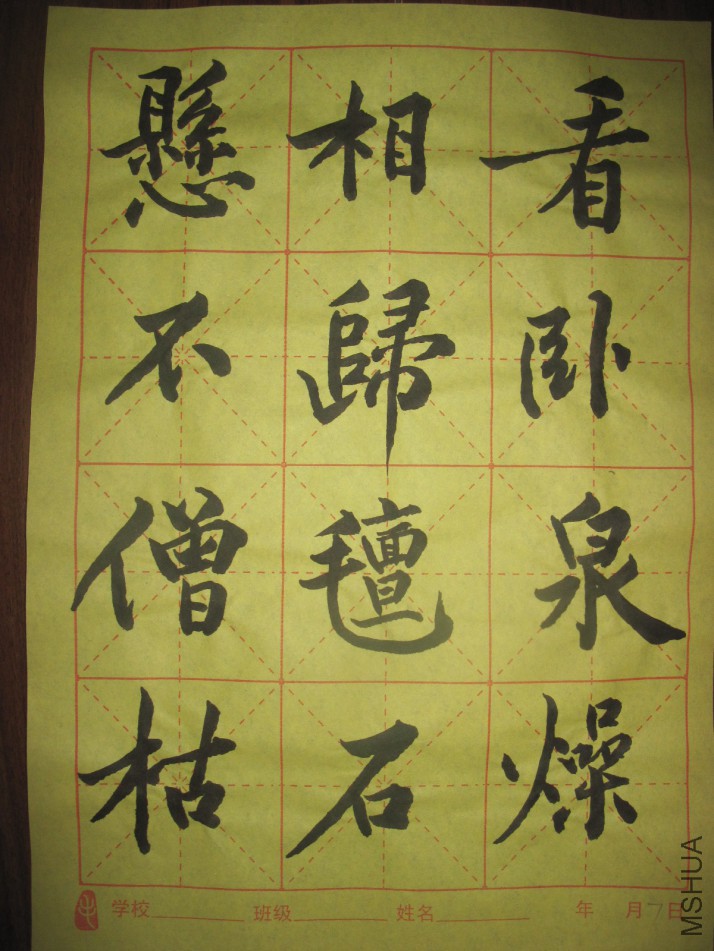 看卧泉燥
相歸氈石
懸不僧枯
学校 班级 姓名 年 月 7 日
MSHUA